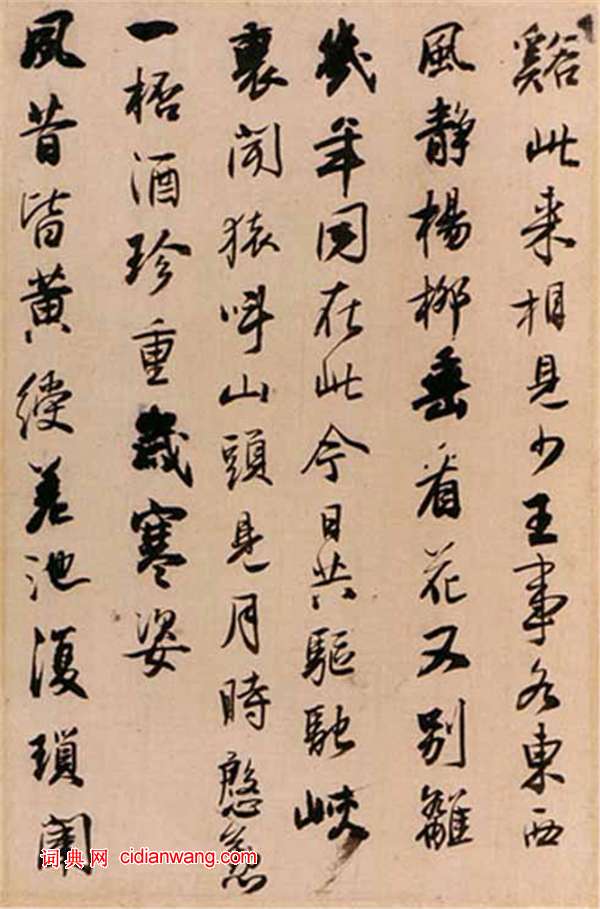 谿此来相見少王事各東西
風静楊柳垂看花又别離
幾年同在此今日共驅馳峽
裏聞猿叫山頭見月時慇懃
一桮酒珍重歲寒姿
夙昔皆黄綬差池復瑣闈
词典网 cidianwang.com